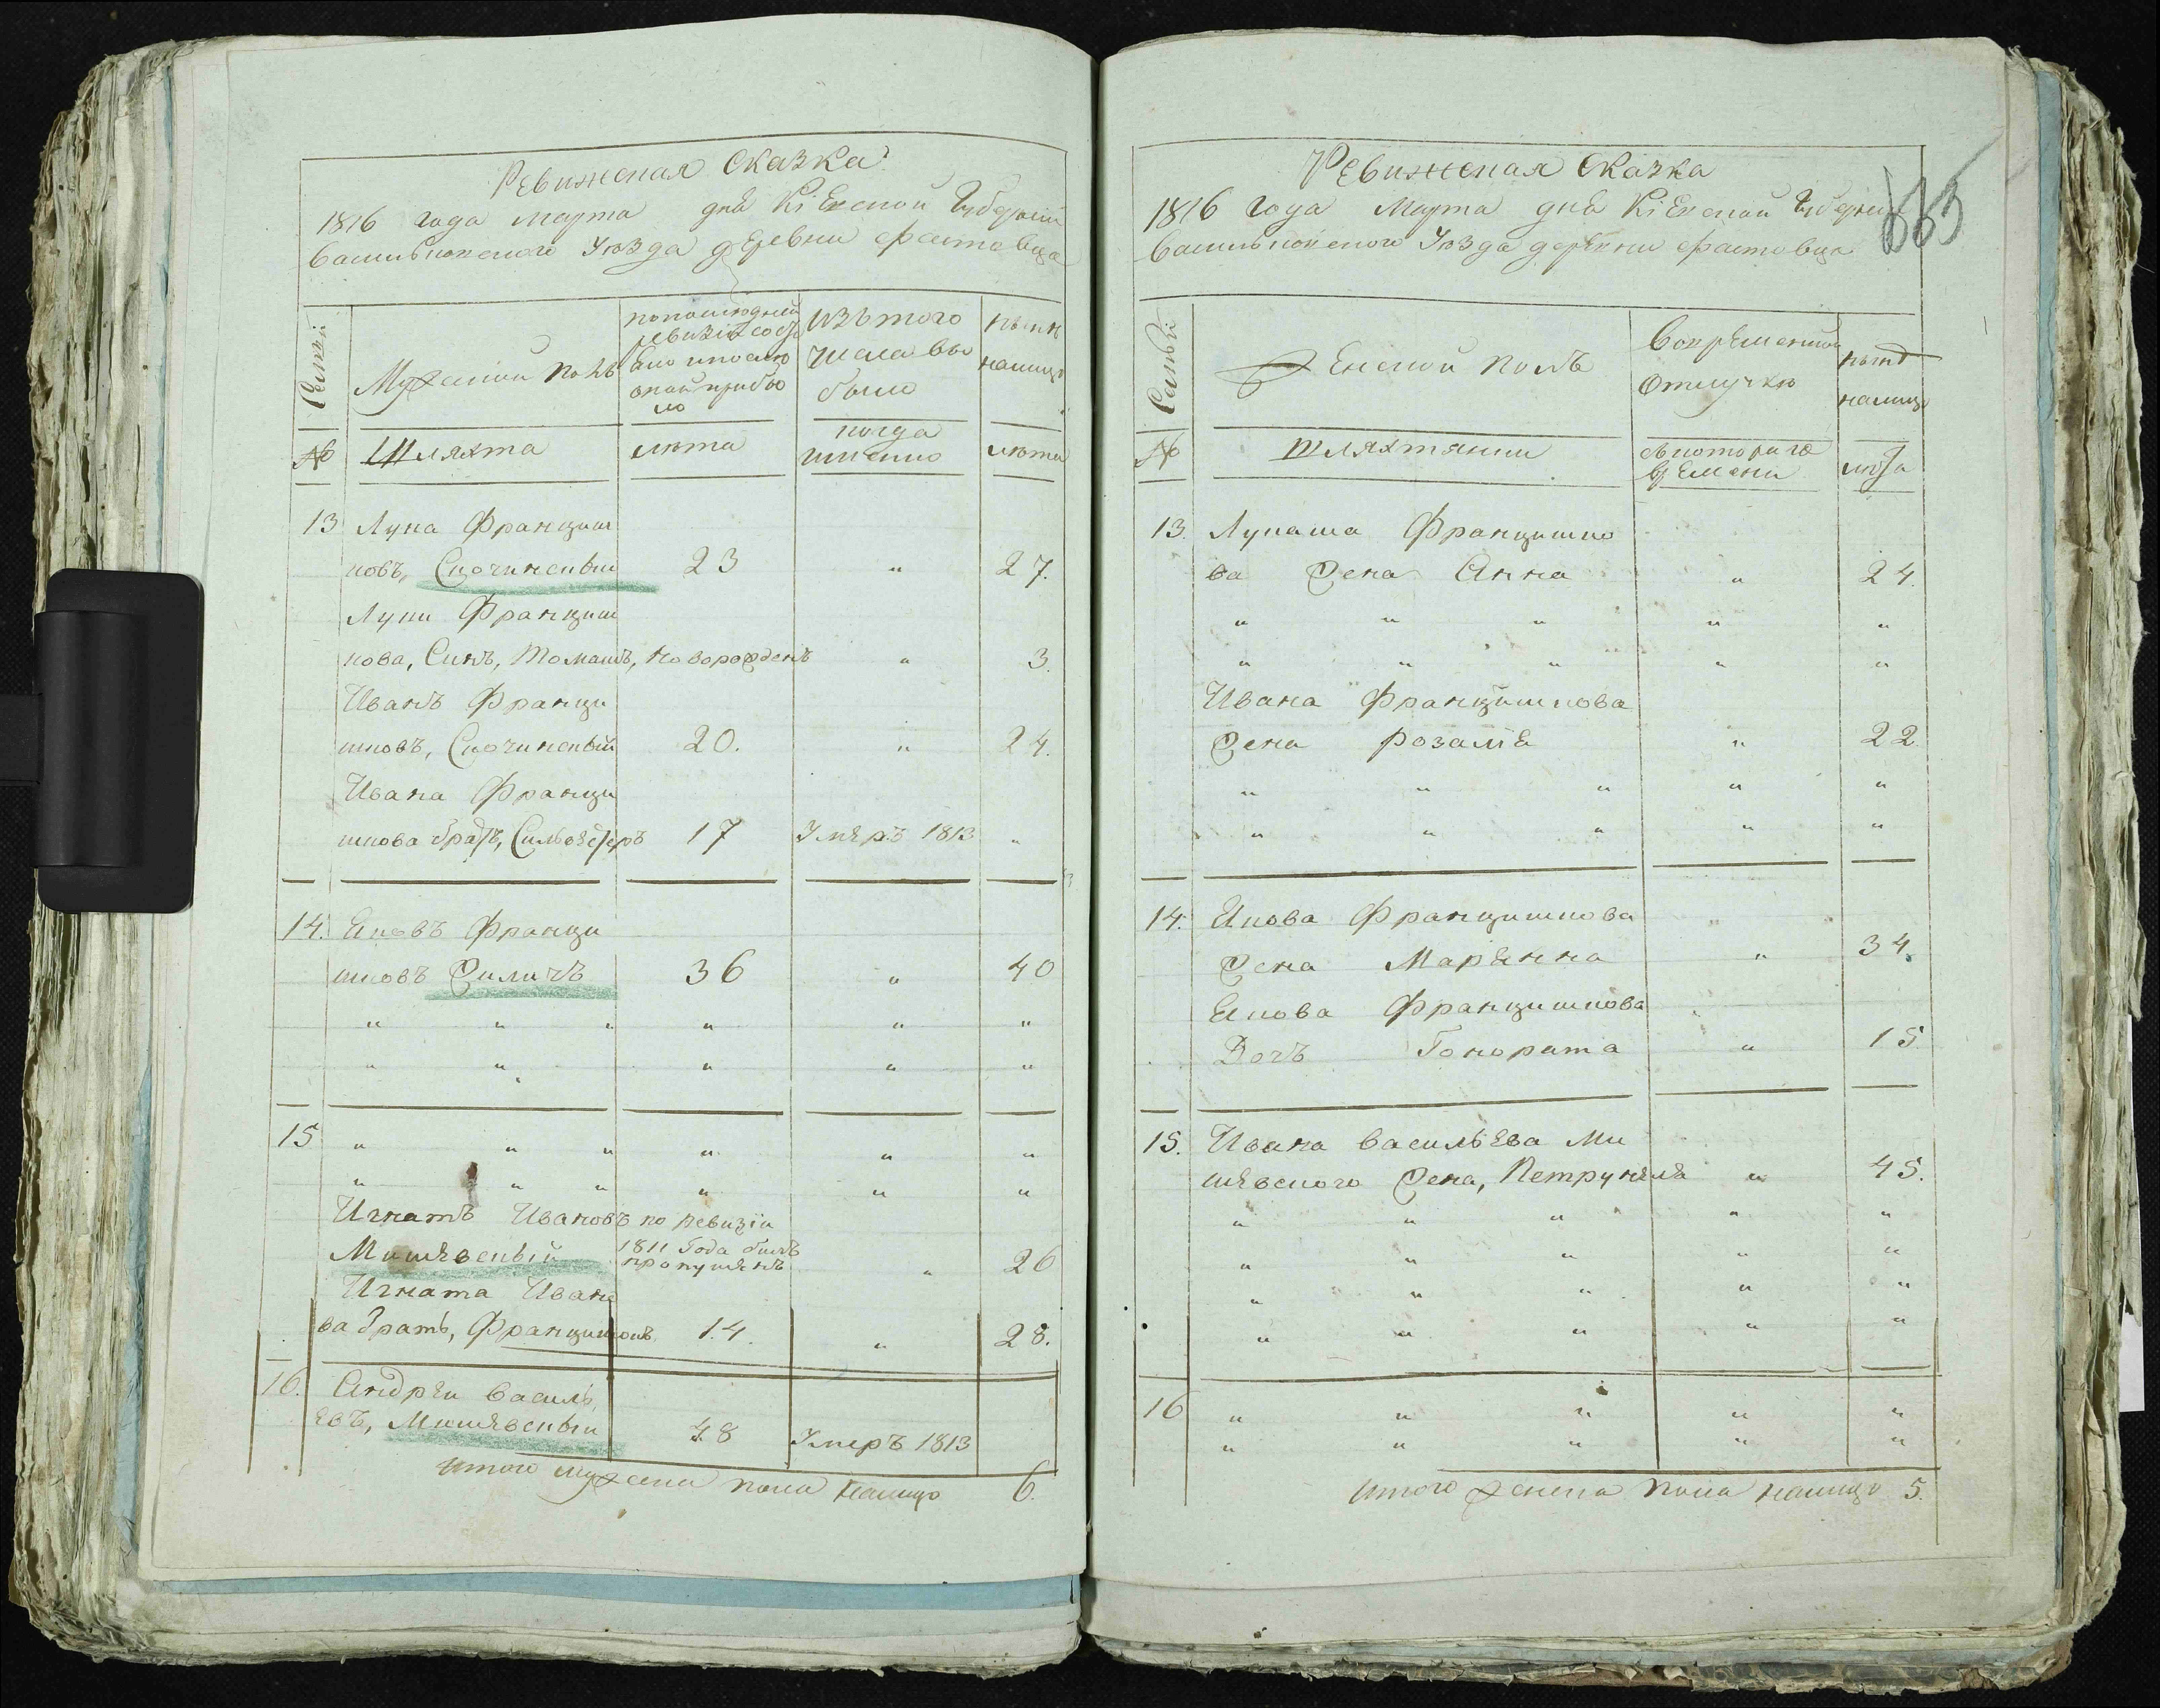 Ревижская Сказка
1816 года Марта дня Кіевской Губерніи
Васильковского Уезда деревни Фастовца
Семьи
Мужеской полъ
по последней ревизіи состояло и после оной прибыло
изъ того числа выбыло
ныне налицо
№
Шляхта
лета
когда именно
лета
13 Лука Франциш
ковъ, Скочинскый 23 " 27.
Луки Францыш
кова, Синъ, Томашъ, новорожденъ " 3.
Иванъ Франци
шковъ, Скочинскый 20. " 24.
Ивана Франци
шкова братъ, Сильвестеръ 17 Умеръ 1813 "
14. Яковъ Франци
шковъ Жиличъ 36 " 40
" " " " " "
" " " " "
15 " " " " " "
" " " " " "
Игнатъ Ивановъ по ревизіи
Мишевскый 1811 Года былъ пропущенъ " 26
Игната Ивано
ва братъ, Францишокъ 14. " 28.
16. Андрей Василь
евъ, Мишевскый 48 Умеръ 1813
Итого мужеска пола налицо 6.
Ревижская Сказка
1816 года Марта дня Кіевской Губерніи
Васильковского Уезда деревни Фастовца
Семьи
Женской полъ
Во временной отлучке
ныне налицо
№
Шляхтянки
съ которого времени
лета
13. Лукаша Францишко
ва Жена Анна " 24.
" " " " "
" " " " "
Ивана Францишкова
Жена Розалія " 22.
" " " " "
" " " " "
14. Якова Францишкова
Жена Марянна " 34.
Якова Францишкова
Дочъ Гонората " 15.
15. Ивана Васильева Ми
шевского Жена, Петрунеля " 45.
" " " " "
" " " " "
" " " " "
" " " " "
16 " " " " "
" " " " "
Итого женска пола налицо 5.